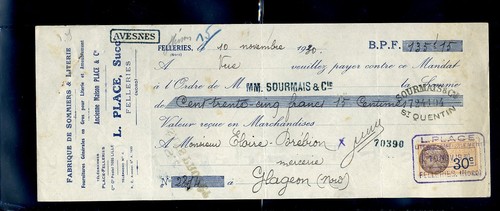 FABRIQUE DE SOMMIERS & LITERIE
Fournitures Générales en Gros pour Literie et Ameublement
Ancienne Maison PLACE & Cie
L. PLACE, Succr
FELLERIES
AVESNES
15
FELLERIES, 10 novembre 1930. B.P.F. 135f 15
A Vue veuillez payer contre ce Mandat
à l'Ordre de M MM. SOURMAIS & Cie la Somme
de Cent trente cinq francs 15 Centimes
SOURMAIS & Cie
St QUENTIN
Valeur reçue en Marchandises
A Monsieur Elaire-Brébion
X 70390
mercerie
Glageon (Nord)
L. PLACE
30c
FELLERIES, (Nord)